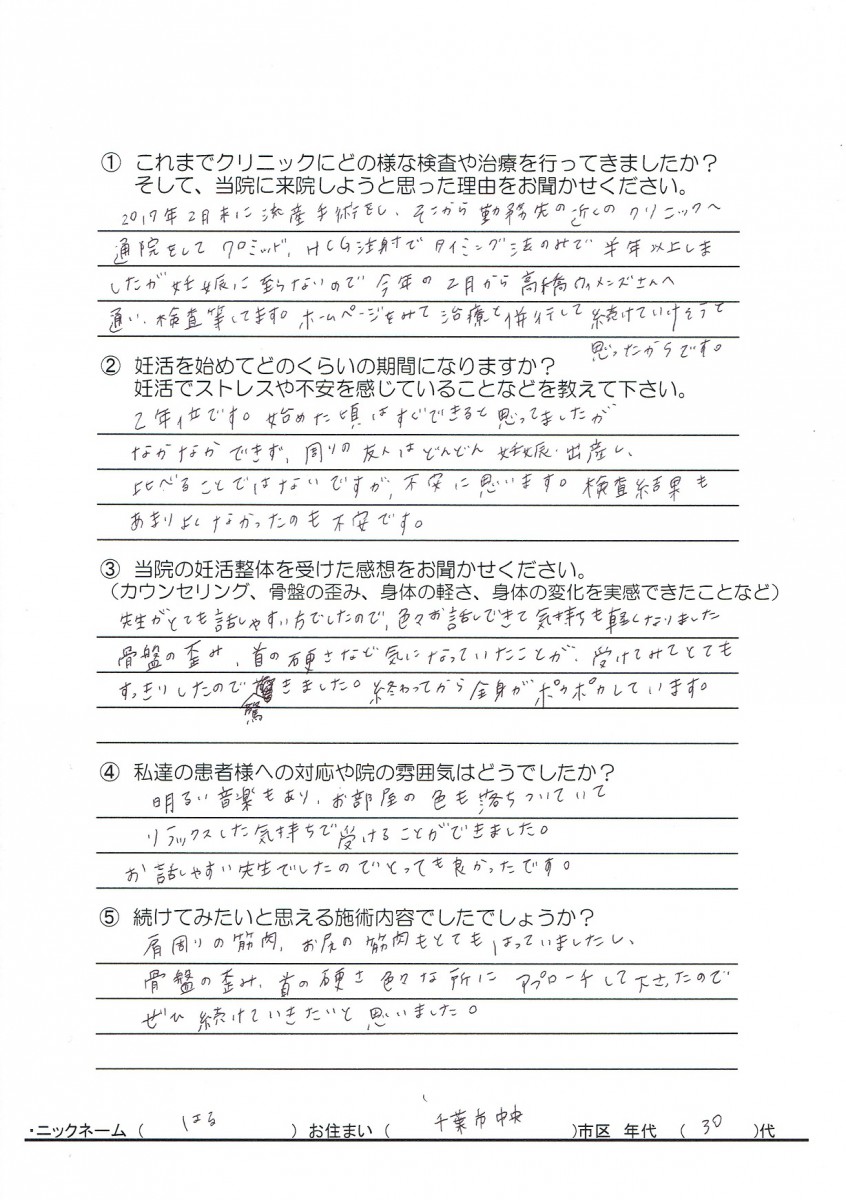 ① これまでクリニックにどの様な検査や治療を行ってきましたか?
そして、当院に来院しようと思った理由をお聞かせください。
2017年2月末に流産手術をし、そこから勤務先の近くのクリニックへ
通院をして クロミッド、HCG注射でタイミング法のみで 半年以上しま
したが妊娠に至らないので 今年の2月から高橋ウィメンズさんへ
通い、検査等してます。ホームページをみて 治療と併行して 続けていけそうと
思ったからです。
② 妊活を始めてどのくらいの期間になりますか?
妊活でストレスや不安を感じていることなどを教えて下さい。
2年位です。始めた頃はすぐできると思ってましたが
なかなかできず、周りの友人はどんどん 妊娠・出産し、
比べることではないですが、不安に思います。検査結果も
あまりよくなかったのも不安です。
③ 当院の妊活整体を受けた感想をお聞かせください。
(カウンセリング、骨盤の歪み、身体の軽さ、身体の変化を実感できたことなど)
先生がとても話しやすい方でしたので、色々お話しできて気持ちも軽くなりました
骨盤の歪み、首の硬さなど気になっていたことが、受けてみてとても
すっきりしたので驚きました。終わってから全身がポカポカしています。
④ 私達の患者様への対応や院の雰囲気はどうでしたか?
明るい音楽もあり、お部屋の色も落ちついていて
リラックスした気持ちで受けることができました。
お話しやすい先生でしたのでとっても良かったです。
⑤ 続けてみたいと思える施術内容でしたでしょうか?
肩周りの筋肉、お尻の筋肉もとてもはっていましたし、
骨盤の歪み、首の硬さ色々な所に アプローチして下さったので
ぜひ 続けていきたいと思いました。
・ニックネーム ( はる ) お住まい ( 千葉市中央 )市区 年代 ( 30 )代